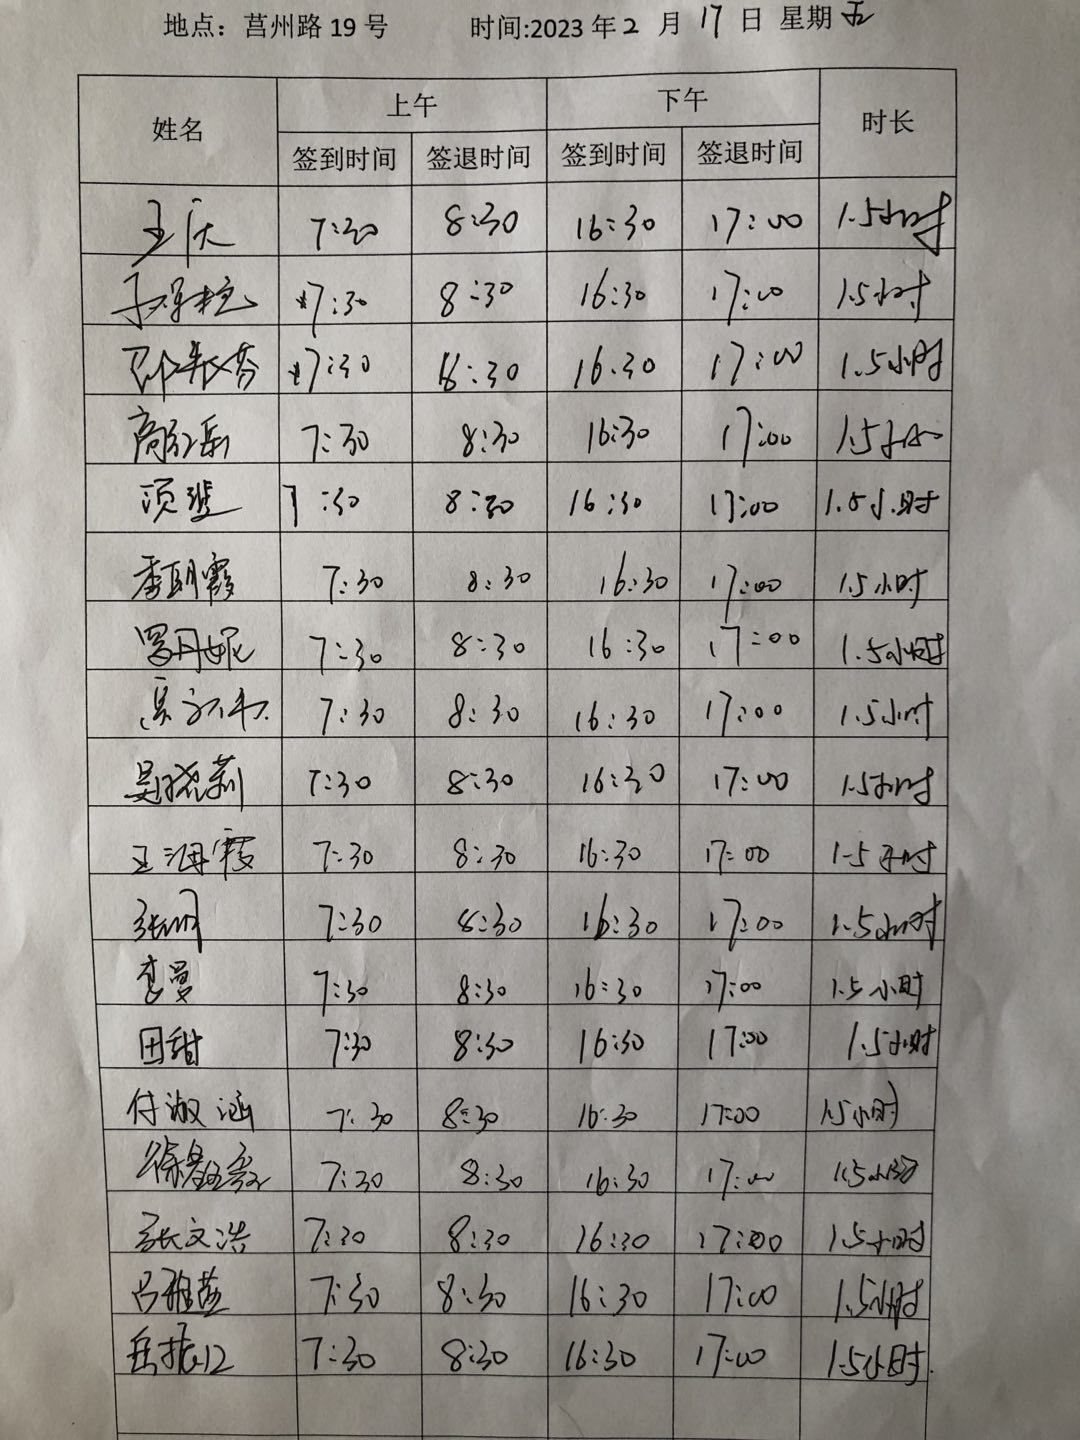 地点：莒州路19号 时间:2023年2月17日 星期五
姓名 上午 下午 时长
签到时间 签退时间 签到时间 签退时间
王庆 7:30 8:30 16:30 17:00 1.5小时
7:30 8:30 16:30 17:00 1.5小时
7:30 8:30 16:30 17:00 1.5小时
7:30 8:30 16:30 17:00 1.5
7:30 8:30 16:30 17:00 1.5小时
7:30 8:30 16:30 17:00 1.5小时
7:30 8:30 16:30 17:00 1.5小时
7:30 8:30 16:30 17:00 1.5小时
吴晓莉 7:30 8:30 16:30 17:00 1.5小时
王海霞 7:30 8:30 16:30 17:00 1.5小时
7:30 8:30 16:30 17:00 1.5小时
李曼 7:30 8:30 16:30 17:00 1.5小时
田甜 7:30 8:30 16:30 17:00 1.5小时
付淑涵 7:30 8:30 16:30 17:00 1.5小时
7:30 8:30 16:30 17:00 1.5小时
张文浩 7:30 8:30 16:30 17:00 1.5小时
7:30 8:30 16:30 17:00 1.5小时
7:30 8:30 16:30 17:00 1.5小时